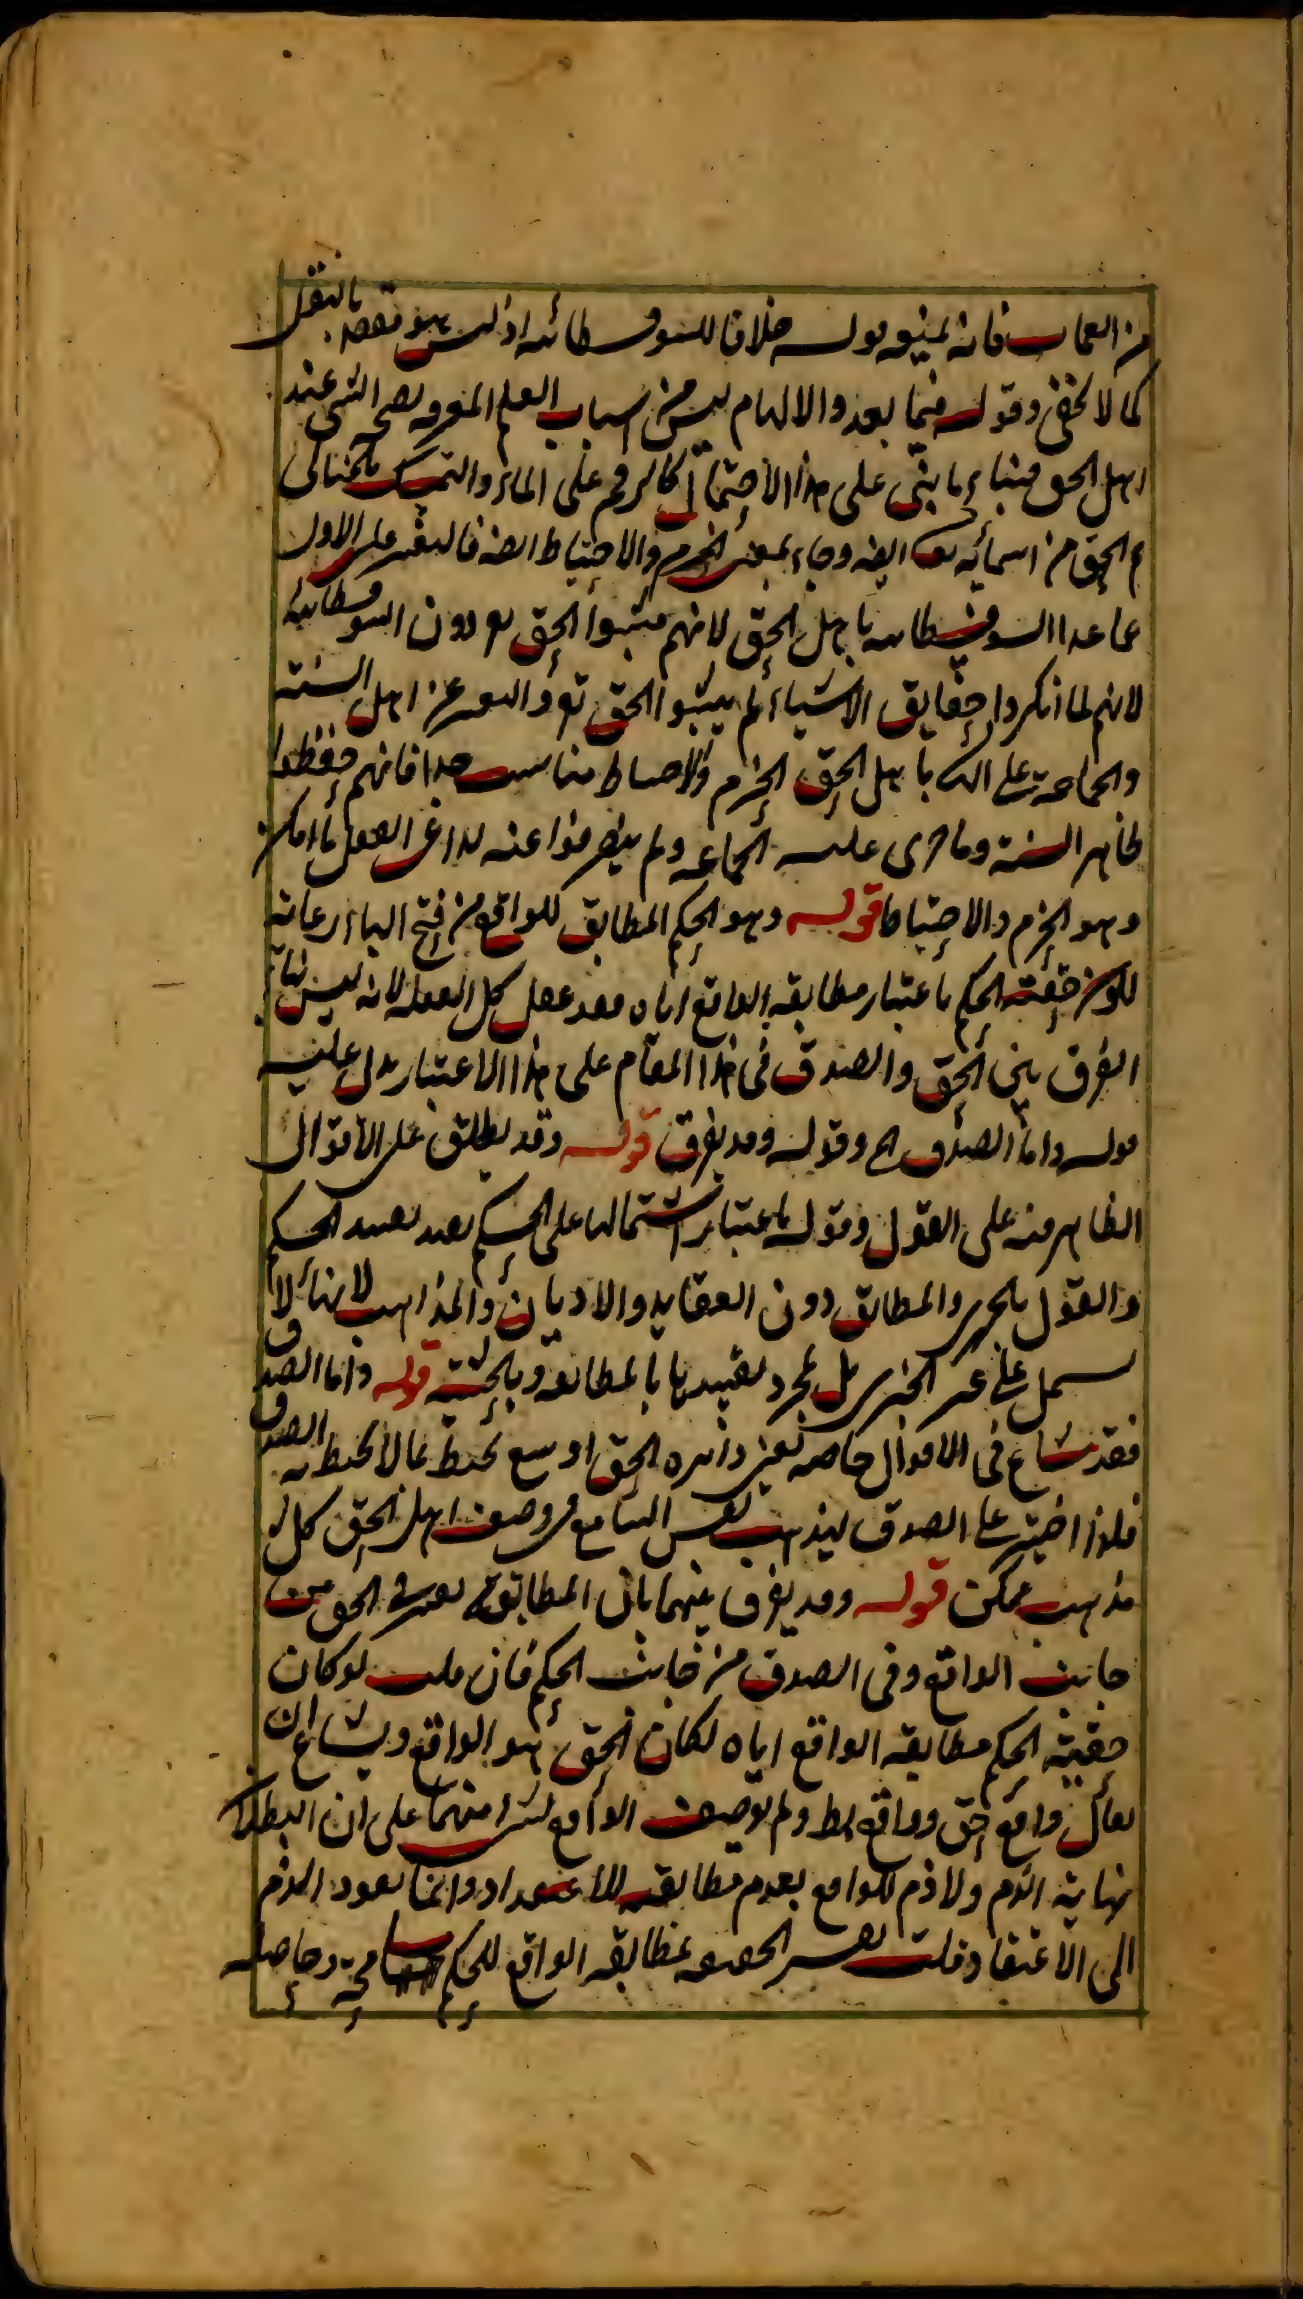 من العجاب فانه يمنعه قوله خلافا للسوفسطائيه اذ ليس هو مقصد بالنقل
كما لا يخفى وقوله فيما بعد والالهام ليس من اسباب العلم المعرفه بصحه الشي عند
اهل الحق فبناء ما بنى على هذا الاحتمال كالرقم على الماء والتمسك
ثم الحق من اسمائه تعالى ايضه وجاء بمعنى الحزم والاحتياط ايضه فالتعبير على الاول
عما عدا السوفسطائيه باهل الحق لانهم مثبتوا الحق تع دون السوفسطائيه
لانهم لما انكروا حقايق الاشياء لم يثبتوا الحق تع والتعبير عن اهل السنة
والجماعة على الثاني باهل الحق الحزم والاحتياط مناسب جدا فانهم حفظوا
ظاهر السنة وما جرى عليه الجماعه ولم ينصرفوا عنه لداعي العقل ما امكن
وهو الحزم والاحتياط قوله وهو الحكم المطابق للواقع من فتح الباء رعاية
لكون حقية الحكم باعتبار مطابقة الواقع اياه فقد غفل كل الغفله لانه ليس بناء
الفرق بين الحق والصدق في هذا المقام على هذا الاعتبار يدل عليه
قوله واما الصدق الخ وقوله وقد يفرق قوله وقد يطلق على الاقوال
الظاهر منه على القول وقوله باعتبار اشتمالها على الحكم يفيد تقييد الحكم
والقول بالخبري والمطابق دون العقايد والاديان والمذاهب لانها لا
تشتمل على غير الخبري بل لمجرد تقييدها بالمطابقه وبالحيثيه قوله واما الصدق
فقد شاع في الاقوال خاصه يعني دائره الحق اوسع يحيط بما لا يحيط به الصدق
فلذا اختير على الصدق ليذهب نفس السامع في وصف اهل الحق كل
مذهب ممكن قوله وقد يفرق بينهما بان المطابقة تعتبر في الحق من
جانب الواقع وفى الصدق من جانب الحكم فان قلت لو كان
حقية الحكم مطابقة الواقع اياه لكان الحق هو الواقع ويشاع ان
يقال واقع حق وواقع بط ولم يوصف الواقع بشئ منهما على ان البطلان
نهاية الذم ولا ذم للواقع بعدم مطابقته للاعتقاد وانما يعود الذم
الى الاعتقاد قلت تفسير الحقيه بمطابقة الواقع للحكم مسامحة وحاصله